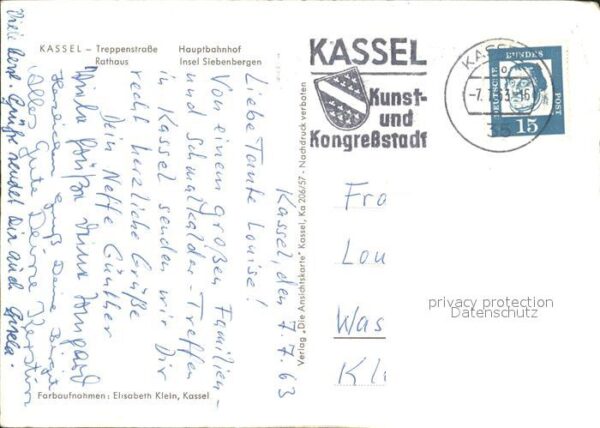 KASSEL – Treppenstraße Hauptbahnhof
Rathaus Insel Siebenbergen
Kassel, den 7.7.63
Liebe Tante Louise!
Von einem großen Familien-
und Schmalkalder-Treffen
in Kassel senden wir Dir
recht herzliche Grüße
Dein Neffe Günther
Viele Grüße Deine Irmgard
Gruß Deine Birgit
Alles Gute Deine Kerstin
Viele herzl. Grüße sendet Dir auch Gisela.
Farbaufnahmen: Elisabeth Klein, Kassel
Verlag „Die Ansichtskarte" Kassel, Ka 206/57 - Nachdruck verboten
KASSEL
Kunst-
und
Kongreßstadt
KASSEL
-7.
35
DEUTSCHE BUNDESPOST
15
Fra
Lou
Was
Kl
privacy protection
Datenschutz